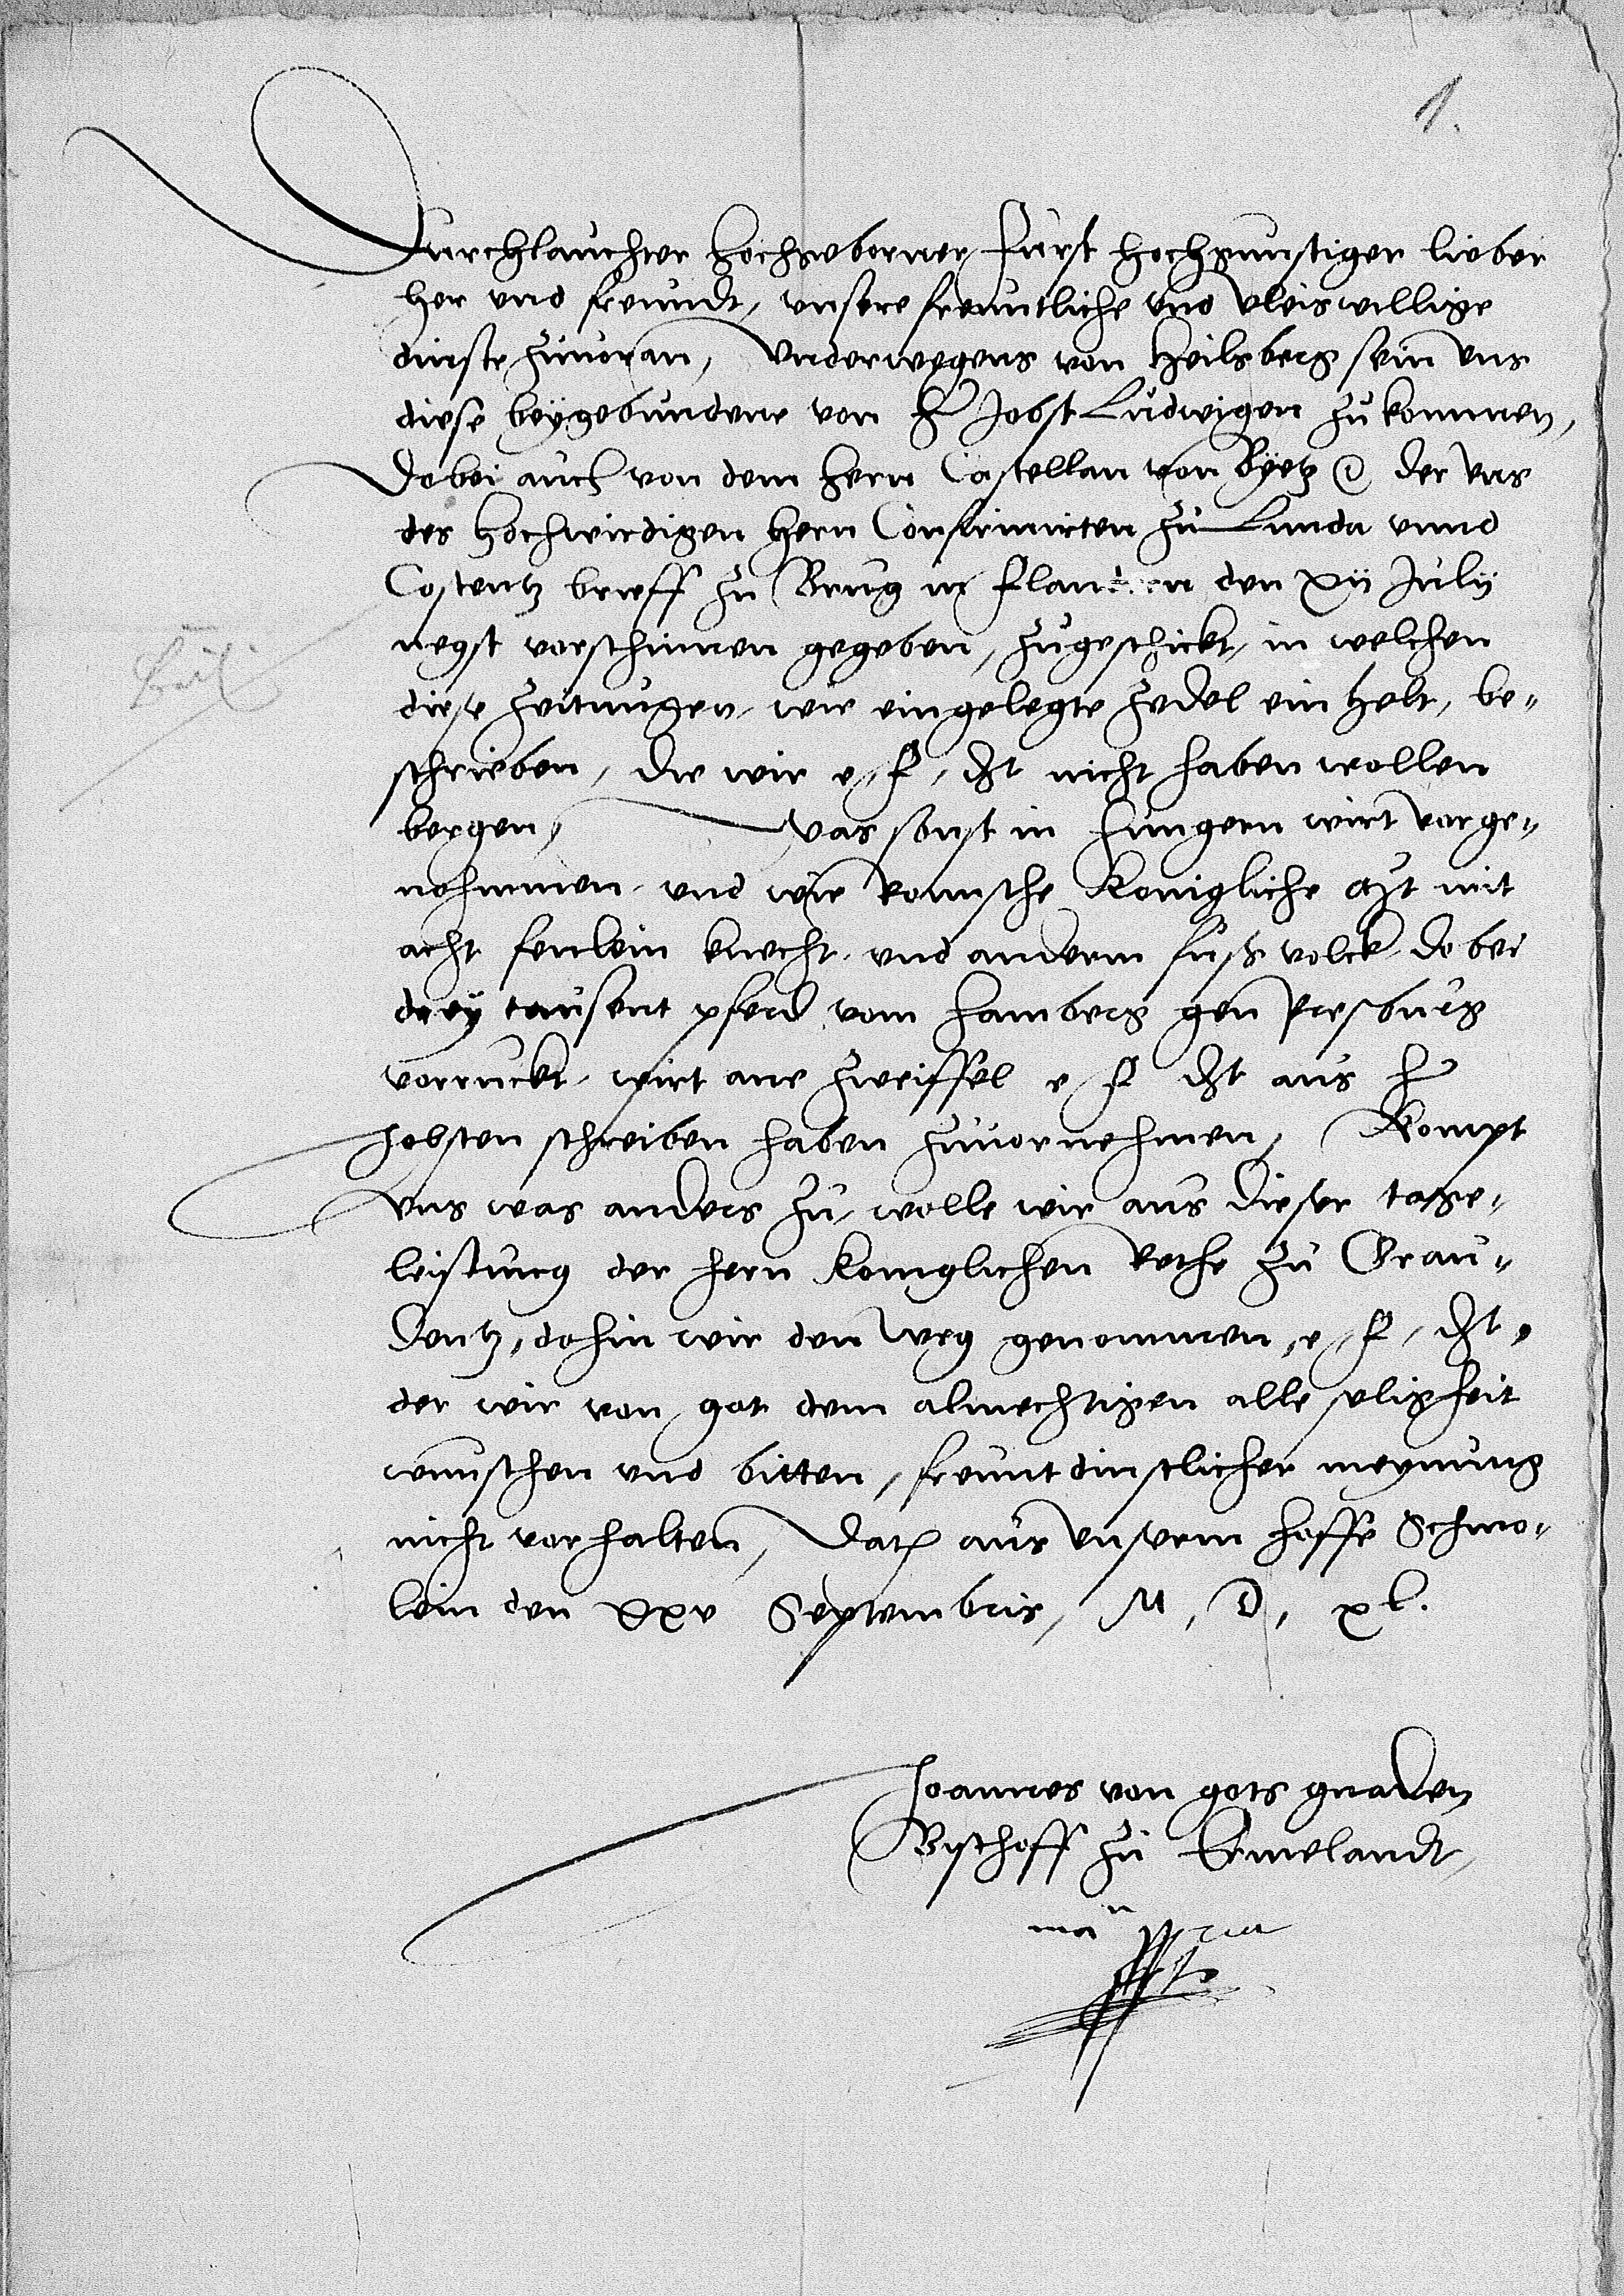 1.
Durchlauchter hochgeborner Furst hochgunstiger lieber
her und freundt, unsere freuntliche und vleiswillige
dinste zuvoran, Underwegens von Heilsberg sein uns
diese beygebundene von H Jobst Ludwigen zukommen,
Dobei auch von dem hern Castellan von Byetz der uns
des hochwirdigen hern Confirmirten zu Lunda unnd
Costentz brieff zu Brug in Flandern den xii Julii
negst vorschinnen gegeben, zugeschickt, in welchen
diese zeitungen, wie eingelegte zedel ein helt, be-
schrieben, die wir e, f, dt nicht haben wollen
bergen, Was sonst in Hungern wirt vorge-
nohmmen, und wie Romische Konigliche Mt mit
acht fenlein knecht, und anderm fusvolck, dobei
drey tausent pferd vom Hamberg gen Presburg
vorruckt, wirt ane zweiffel e f dt aus H
Jobsten schreiben haben zuvornehmen, Kompt
uns was anders zu, wolle wir aus dieser tage-
leistung der hern koniglichen Rethe zu Grau-
dentz, dohin wir den weg genommen, e, f, dt,
der wir von got dem almechtigen alle seligheit
wunschen und bitten, freuntdinstlicher meynung
nicht vorhalten, Dat aus unserm hoffe Schmo-
lein den xxv Septembris, M, D, xl.
Joannes von gots gnaden
Bischoff zu Ermelandt,
man ppria